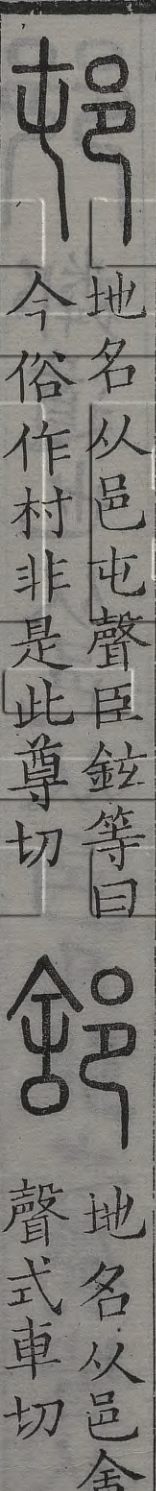 邨
地名从邑屯聲臣鉉等曰
今俗作村非是此尊切
䣄
地名从邑舍
聲式車切